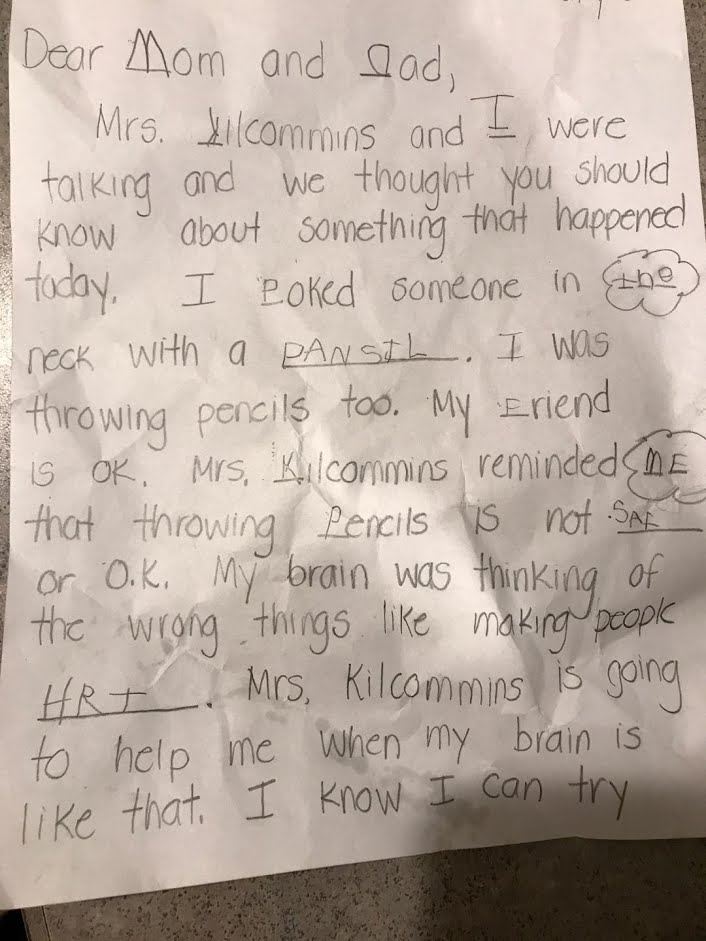 Dear Mom and Dad,
Mrs. Kilcommins and I were
talking and we thought you should
know about something that happened
today. I Poked someone in the
neck with a PANSIL. I was
throwing pencils too. My Friend
is OK. Mrs. Kilcommins reminded ME
that throwing Pencils is not SAF
or O.K. My brain was thinking of
the wrong things like making people
HRT. Mrs. Kilcommins is going
to help me when my brain is
like that. I know I can try